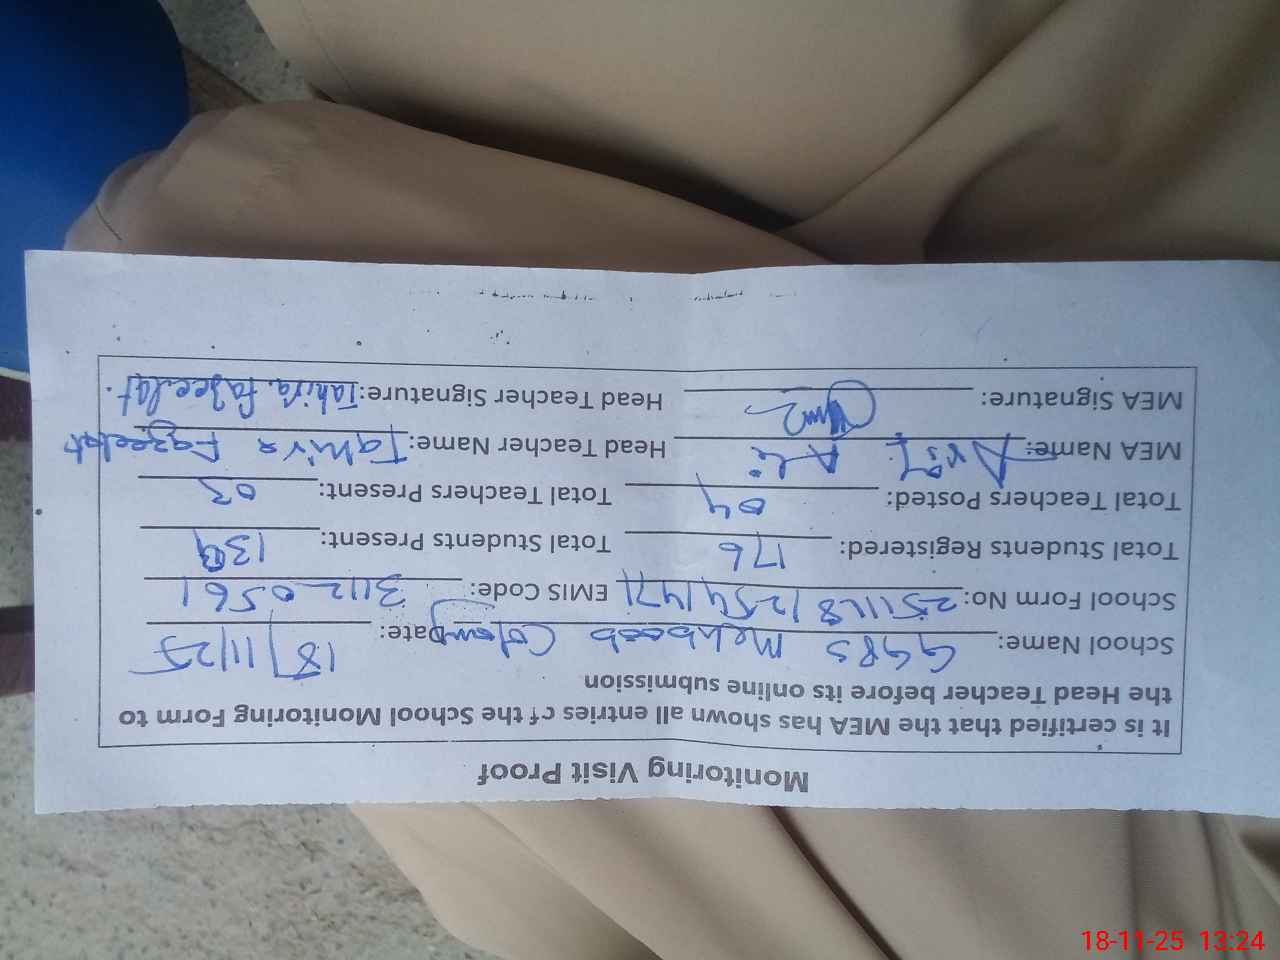 Monitoring Visit Proof
It is certified that the MEA has shown all entries of the School Monitoring Form to
the Head Teacher before its online submission
School Name: GGPS Mehboob Colony Date: 18/11/25
School Form No: 251118/2541471 EMIS Code: 31120561
Total Students Registered: 176 Total Students Present: 139
Total Teachers Posted: 04 Total Teachers Present: 03
MEA Name: Ali Head Teacher Name: Tahira Fazeelat
MEA Signature: Head Teacher Signature: Tahira Fazeelat.
18-11-25 13:24